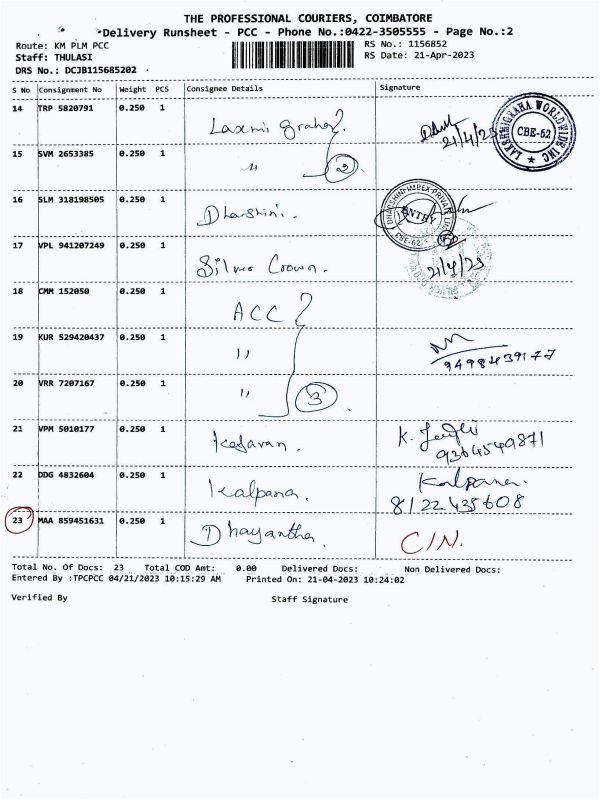 THE PROFESSIONAL COURIERS, COIMBATORE
*Delivery Runsheet - PCC - Phone No.:0422-3505555 - Page No.:2
Route: KM PLM PCC RS No.: 1156852
Staff: THULASI RS Date: 21-Apr-2023
DRS No.: DCJB115685202
S No Consignment No Weight PCS Consignee Details Signature
14 TRP 5820791 0.250 1 Laxmi Graha 21/4/23
LAKSHMIGRAHA WORLDWIDE INC CBE-62
15 SVM 2653385 0.250 1 " 2
16 SLM 318198505 0.250 1 Dharshini.
DHARSHINI IMPEX PRIVATE ENTRY CBE-62
17 VPL 941207249 0.250 1 Silver Crown. 21/4/23
18 CMM 152050 0.250 1 ACC
19 KUR 529420437 0.250 1 "
20 VRR 7207167 0.250 1 " 3
21 VPM 5010177 0.250 1 Kesavan. K.
22 DDG 4832604 0.250 1 Kalpana. Kalpana.
8122435608
23 MAA 859451631 0.250 1 Dhayantha. C/N.
Total No. Of Docs: 23 Total COD Amt: 0.00 Delivered Docs: Non Delivered Docs:
Entered By :TPCPCC 04/21/2023 10:15:29 AM Printed On: 21-04-2023 10:24:02
Verified By Staff Signature